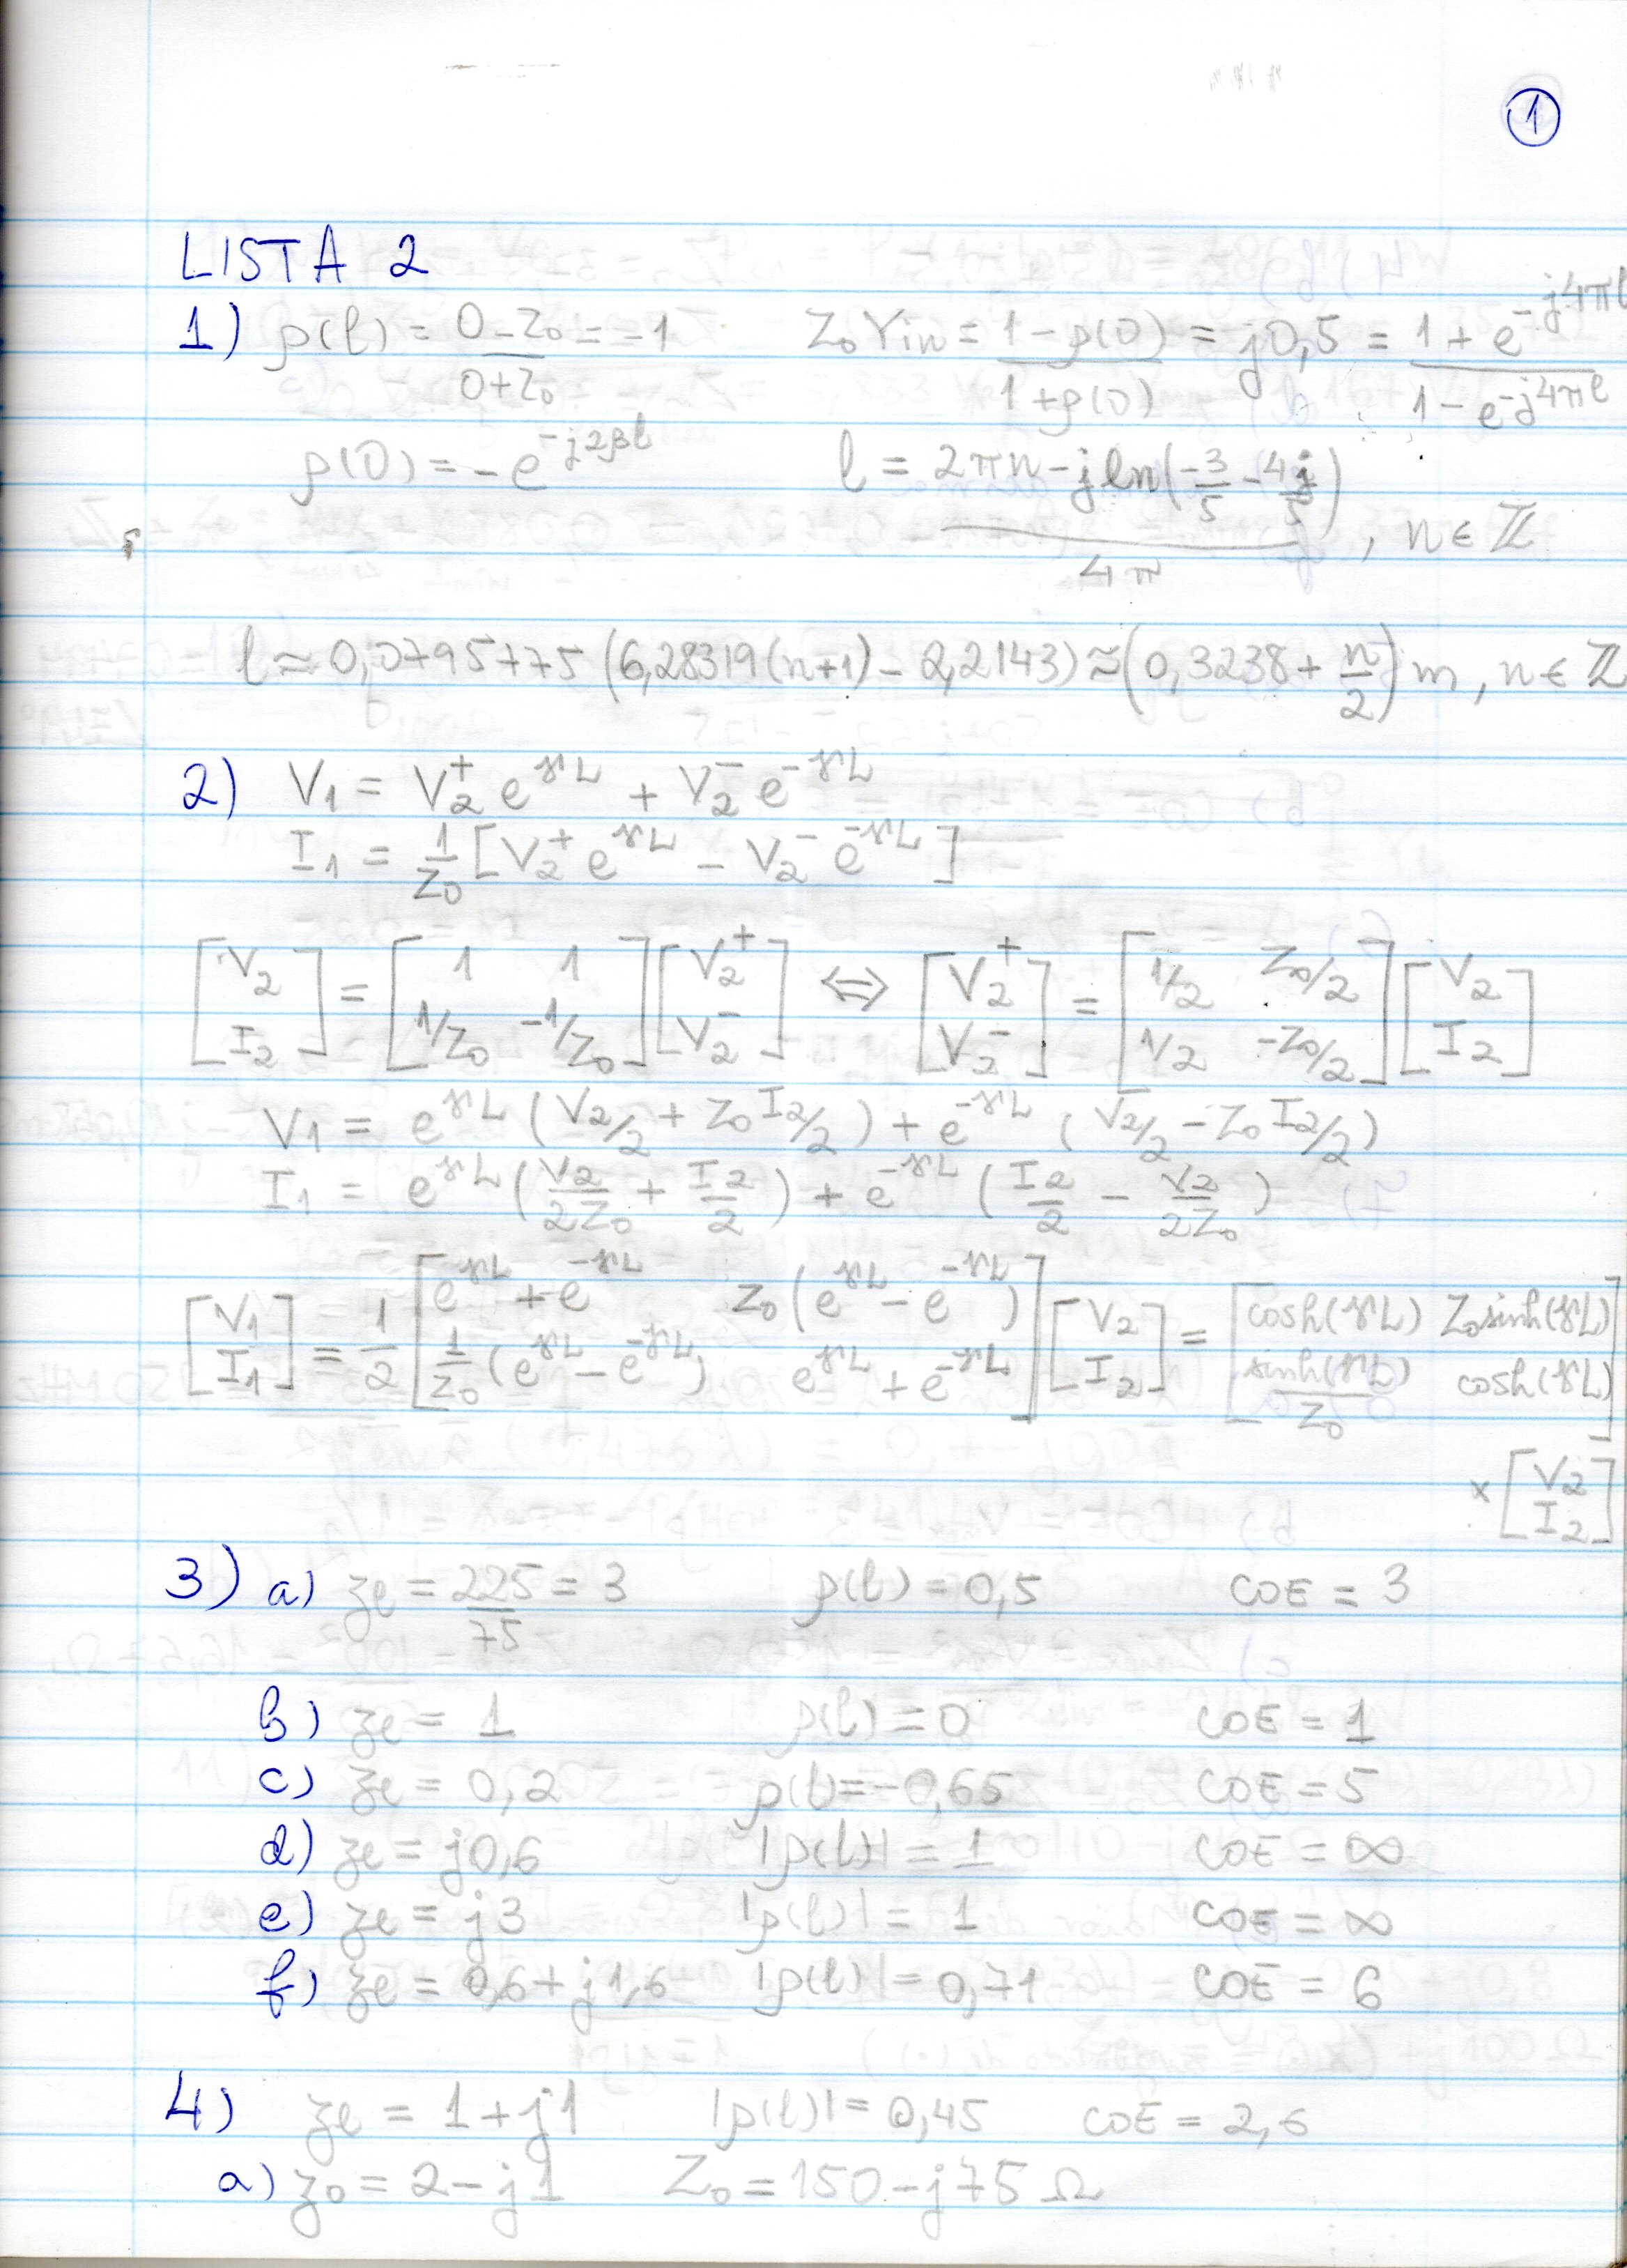 1
LISTA 2
1) ρ(l) = (0-Z₀)/(0+Z₀) = -1 Z₀Yin = (1-ρ(0))/(1+ρ(0)) = j0,5 = (1+e^(-j4πl))/(1-e^(-j4πl))
ρ(0) = -e^(-j2βl) l = (2πn-jln(-3/5-4j/5))/4π , n∈ℤ
l ≈ 0,0795775 (6,28319(n+1) - 2,2143) ≈ (0,3238 + n/2) m, n∈ℤ
2) V₁ = V₂⁺ e^(γL) + V₂⁻ e^(-γL)
I₁ = 1/Z₀ [V₂⁺ e^(γL) - V₂⁻ e^(-γL)]
[V₂; I₂] = [1 1; 1/Z₀ -1/Z₀] [V₂⁺; V₂⁻] ⇔ [V₂⁺; V₂⁻] = [1/2 Z₀/2; 1/2 -Z₀/2] [V₂; I₂]
V₁ = e^(γL) (V₂/2 + Z₀I₂/2) + e^(-γL) (V₂/2 - Z₀I₂/2)
I₁ = e^(γL) (V₂/2Z₀ + I₂/2) + e^(-γL) (I₂/2 - V₂/2Z₀)
[V₁; I₁] = 1/2 [e^(γL)+e^(-γL) Z₀(e^(γL)-e^(-γL)); 1/Z₀(e^(γL)-e^(-γL)) e^(γL)+e^(-γL)] [V₂; I₂] = [cosh(γL) Z₀sinh(γL); sinh(γL)/Z₀ cosh(γL)]
× [V₂; I₂]
3) a) zℓ = 225/75 = 3 ρ(l) = 0,5 COE = 3
b) zℓ = 1 ρ(l) = 0 COE = 1
c) zℓ = 0,2 ρ(l)=-0,65 COE = 5
d) zℓ = j0,6 |ρ(l)| = 1 COE = ∞
e) zℓ = j3 |ρ(l)| = 1 COE = ∞
f) zℓ = 0,6+j1,6 |ρ(l)| = 0,71 COE = 6
4) zℓ = 1+j1 |ρ(l)| = 0,45 COE = 2,6
a) z₀ = 2-j1 Z₀ = 150-j75 Ω